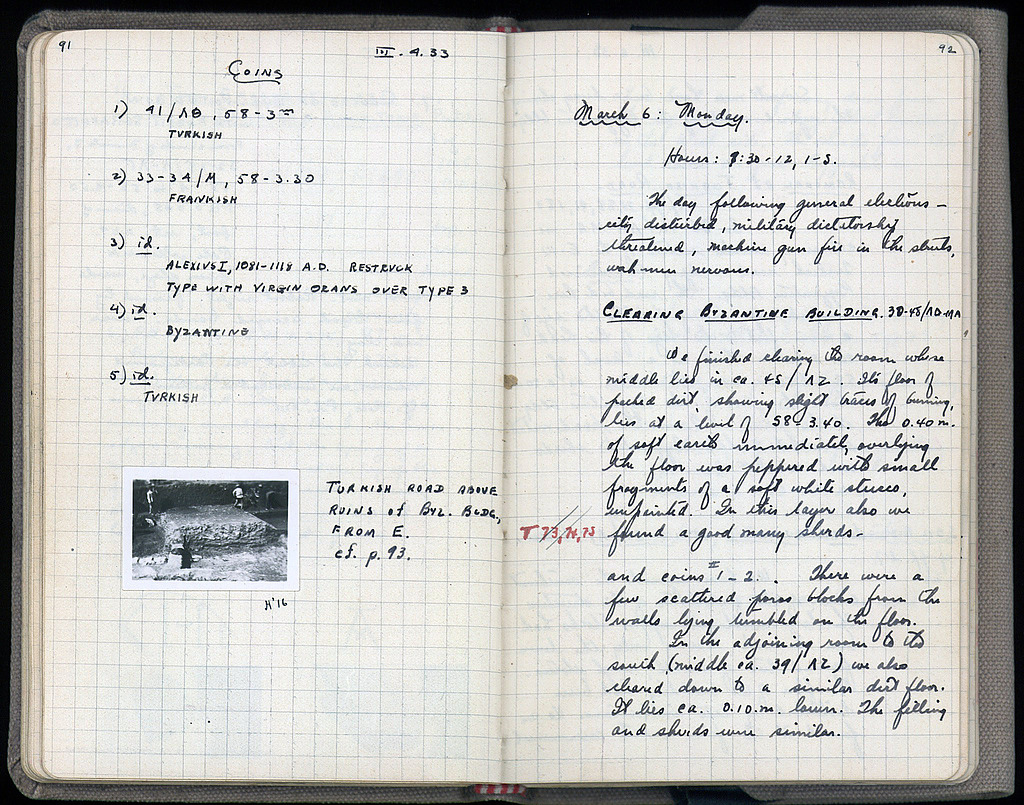 91
III. 4. 33
COINS
1) 41/ΛΘ, 58-3 m
TVRKISH
2) 33-34/M, 58-3.30
FRANKISH
3) id.
ALEXIVS I, 1081-1118 A.D. RESTRVCK
TYPE WITH VIRGIN ORANS OVER TYPE 3
4) id.
BYZANTINE
5) id.
TVRKISH
TURKISH ROAD ABOVE
RUINS of BYZ. BLDG,
FROM E.
cf. p. 93.
H'16
92
March 6: Monday.
Hours: 8:30-12, 1-5.
The day following general elections –
city disturbed, military dictatorship
threatened, machine gun fire in the streets,
workmen nervous.
CLEARING BYZANTINE BUILDING. 38-45/
We finished clearing the room whose
middle lies in ca. 45/ΛΖ. Its floor of
packed dirt, showing slight traces of burning,
lies at a level of 58-3.40. The 0.40 m.
of soft earth immediately overlying
the floor was peppered with small
fragments of a soft white stucco,
unpainted. In this layer also we
T 73, 74, 75
found a good many sherds –
and coins II 1-2. There were a
few scattered poros blocks from the
walls lying tumbled on the floor.
In the adjoining room to the
south (middle ca. 39/ΛΖ) we also
cleared down to a similar dirt floor.
It lies ca. 0.10 m. lower. The filling
and sherds were similar.